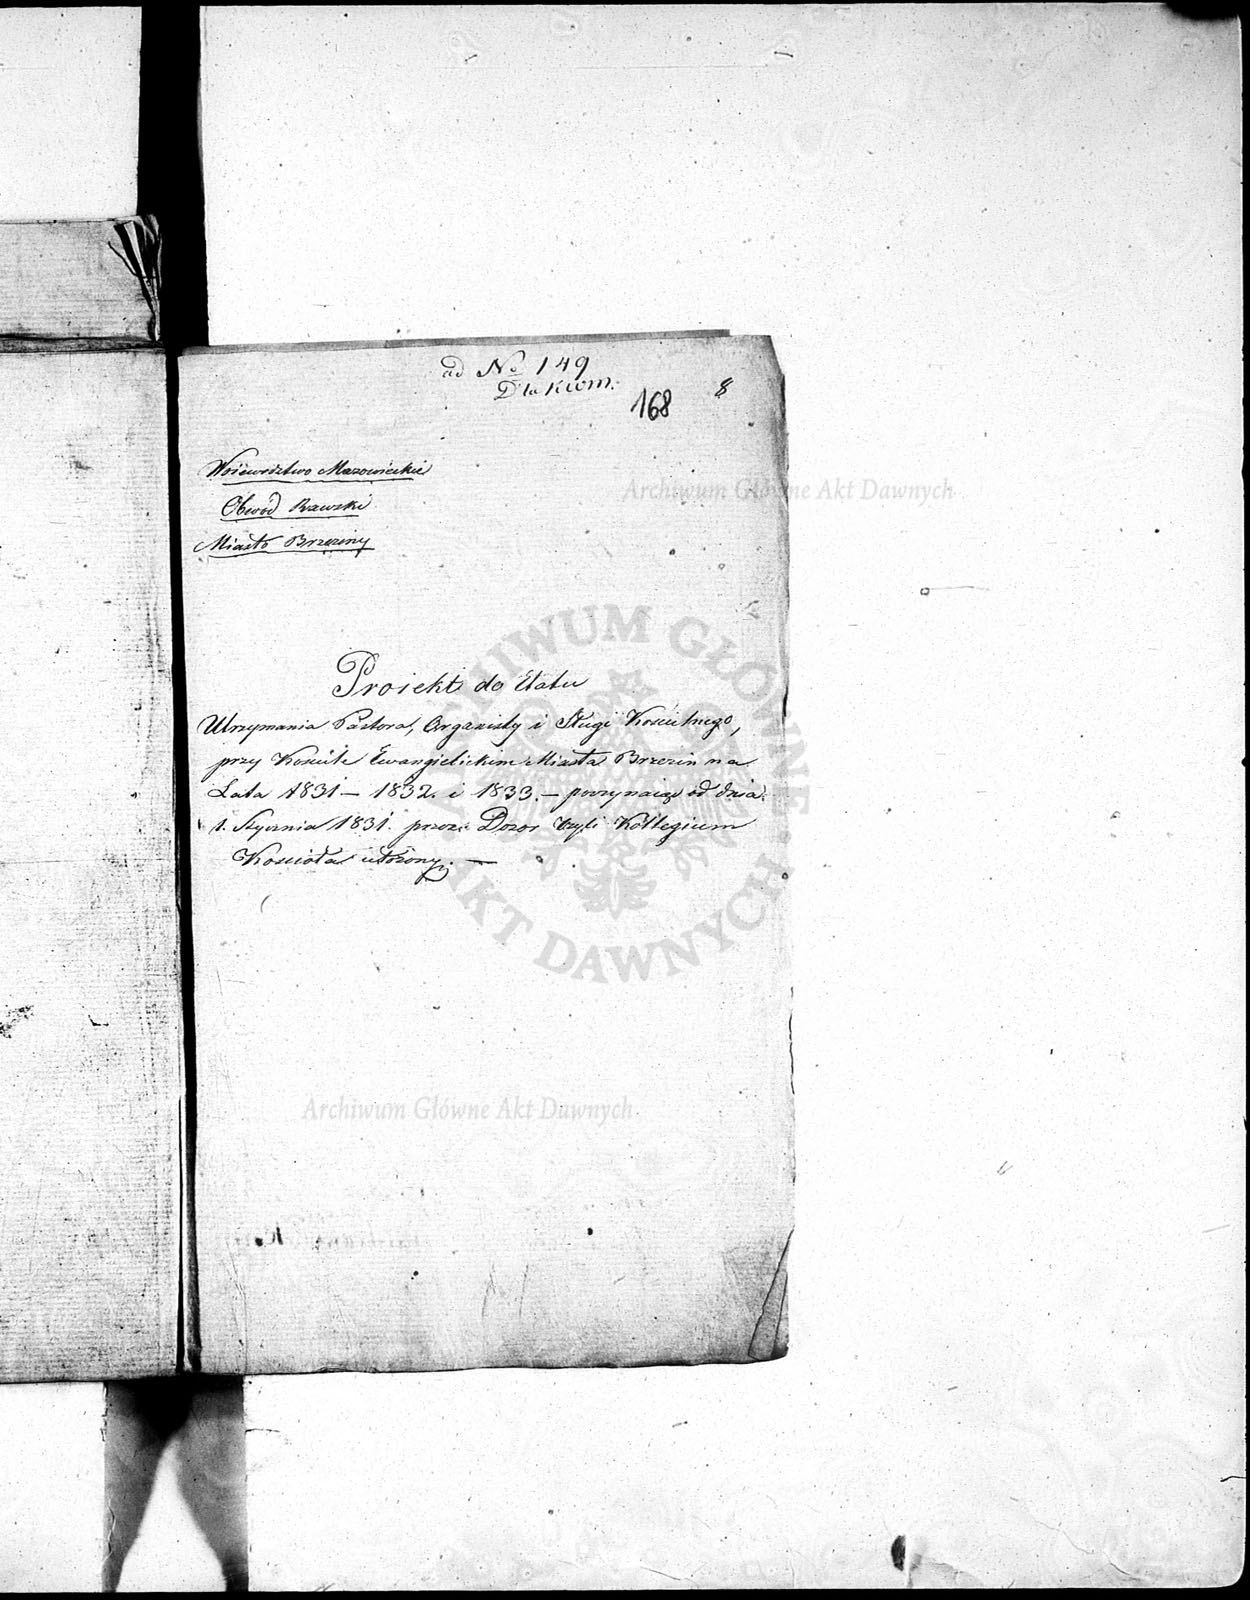 ad No 149
168 8
Województwo Mazowieckie
Obwód Rawski
Miasto Brzeziny
Archiwum Główne Akt Dawnych
Proiekt do Etatu
Utrzymania Pastora, Organisty i Sługi Kościelnego,
przy Kościele Ewangielickim Miasta Brzezin na
Lata 1831 – 1832. i 1833. – poczynaiąc od dnia
1. Stycznia 1831. przez Dozor czyli Kollegium
Kościoła ułożony. —
ARCHIWUM GŁÓWNE AKT DAWNYCH
Archiwum Główne Akt Dawnych